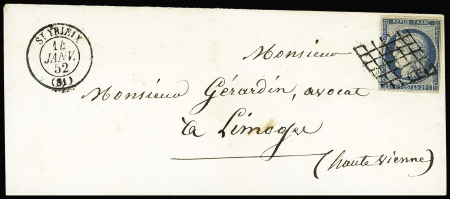 ST YRIEIX
14
JANV.
52
(81)
REPUB. FRANC.
Monsieur
Monsieur Gérardin, avocat
à Limoges
(haute vienne)